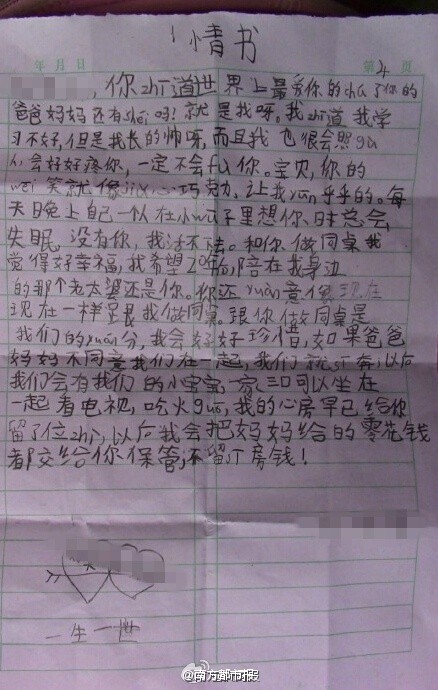 情书
年 月 日 第4页
,你zhī道世界上最爱你的chú了你的
爸爸妈妈还有shéi吗?就是我呀。我zhī道我学
习不好,但是我长的帅呀,而且我也很会照gù
人,会好好疼你,一定不会fù你。宝贝,你的
wēi笑就像巧克力,让我yūn乎乎的。每
天晚上自己一人在小wū子里想你,时总会
失眠,没有你,我活不去。和你做同桌我
觉得好幸福,我希望20年后,陪在我身边
的那个老太婆还是你。你还yuàn意像现在
现在一样跟我做同桌。跟你做同桌是
我们的yuán分,我会好好珍惜,如果爸爸
妈妈不同意我们在一起,我们就奔,以后
我们会有我们的小宝宝,一家三口可以坐在
一起看电视,吃火guō,我的心房早已给你
留了位zhì,以后我会把妈妈给的零花钱
都交给你保管,不留下房钱!
一生一世
@南方都市报